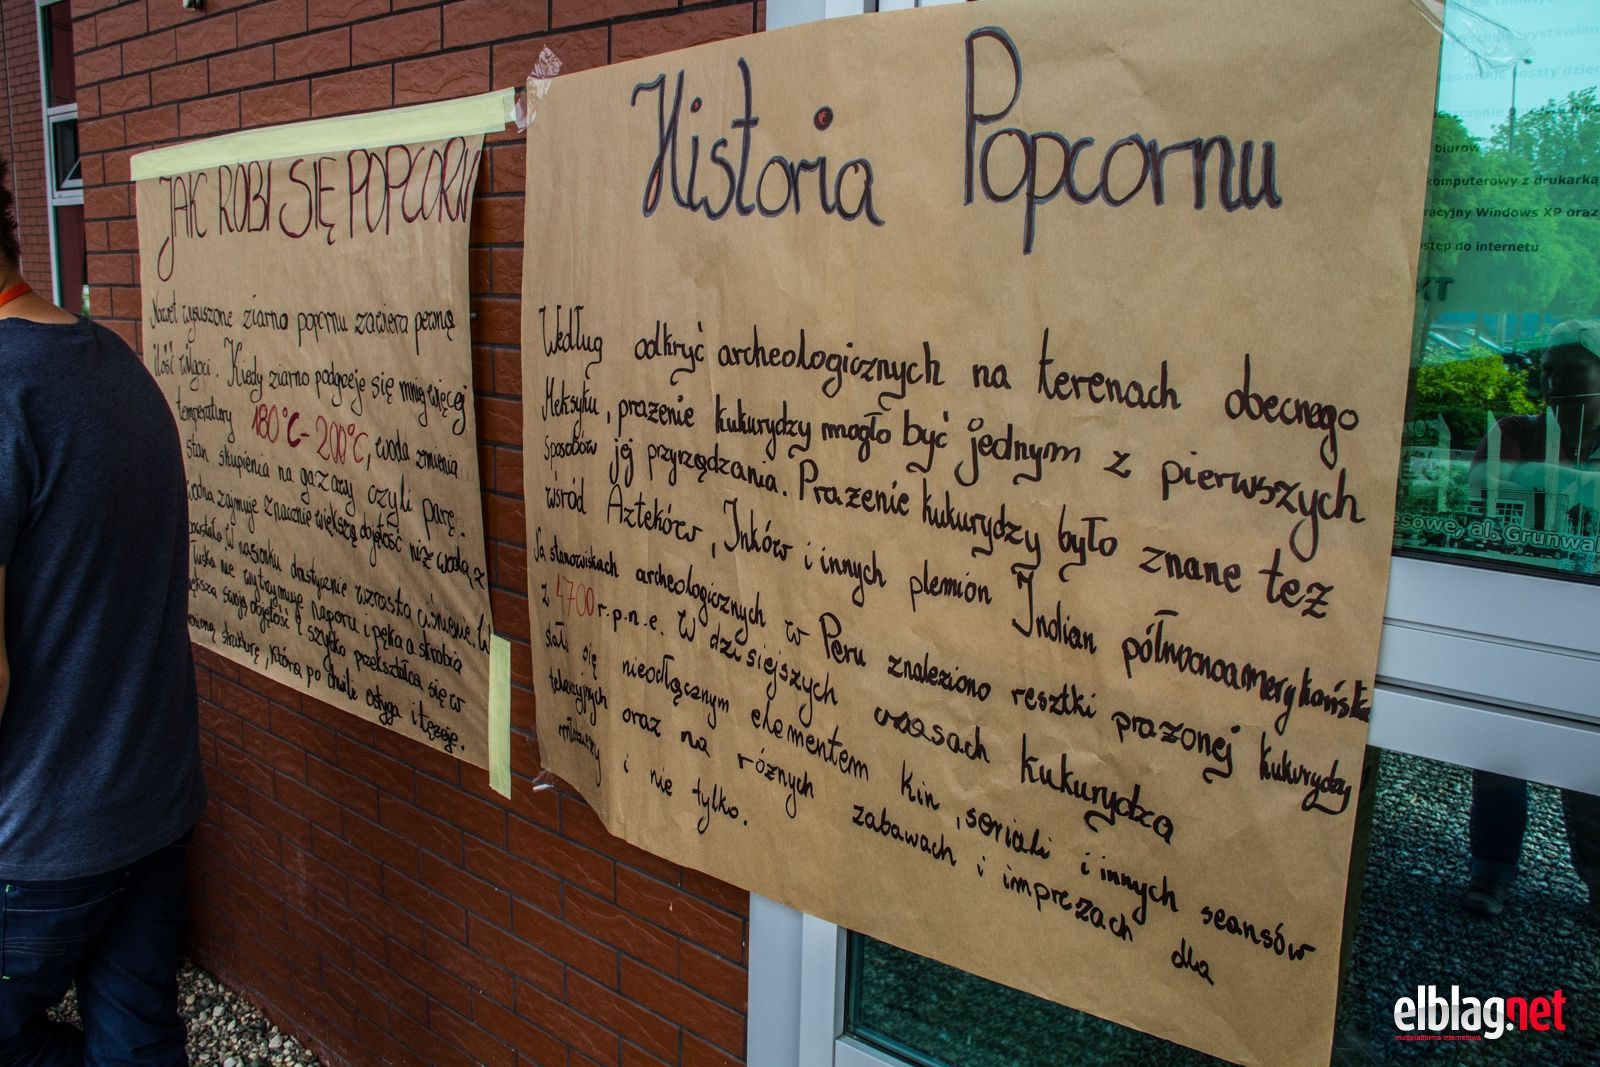 JAK ROBI SIĘ POPCORN
Nawet wysuszone ziarno popcornu zawiera pewną
ilość wilgoci. Kiedy ziarno podgrzeje się mniej więcej
temperatury 180°C - 200°C, woda zmienia
stan skupienia na gazowy czyli parę.
wodna zajmuje znacznie większą objętość niż woda, z
powstała w nasionku drastycznie wzrasta ciśnienie.
łuska nie wytrzymuje naporu i pęka a skrobia
swoją objętość i szybko przekształca się w
strukturę, która po chwili ostyga i tężeje.
Historia Popcornu
Według odkryć archeologicznych na terenach obecnego
Meksyku, prażenie kukurydzy mogło być jednym z pierwszych
sposobów jej przyrządzania. Prażenie kukurydzy było znane też
wśród Azteków, Inków i innych plemion Indian północnoamerykańskich
Na stanowiskach archeologicznych w Peru znaleziono resztki prażonej kukurydzy
z 4700 r.p.n.e. W dzisiejszych czasach kukurydza
stała się nieodłącznym elementem kin, seriali i innych seansów
telewizyjnych oraz na różnych zabawach i imprezach dla
młodzieży i nie tylko.
biurow
komputerowy z drukarką
racyjny Windows XP oraz
stęp do internetu
KT
esowe, al. Grunwal
elblag.net
multiplatforma internetowa